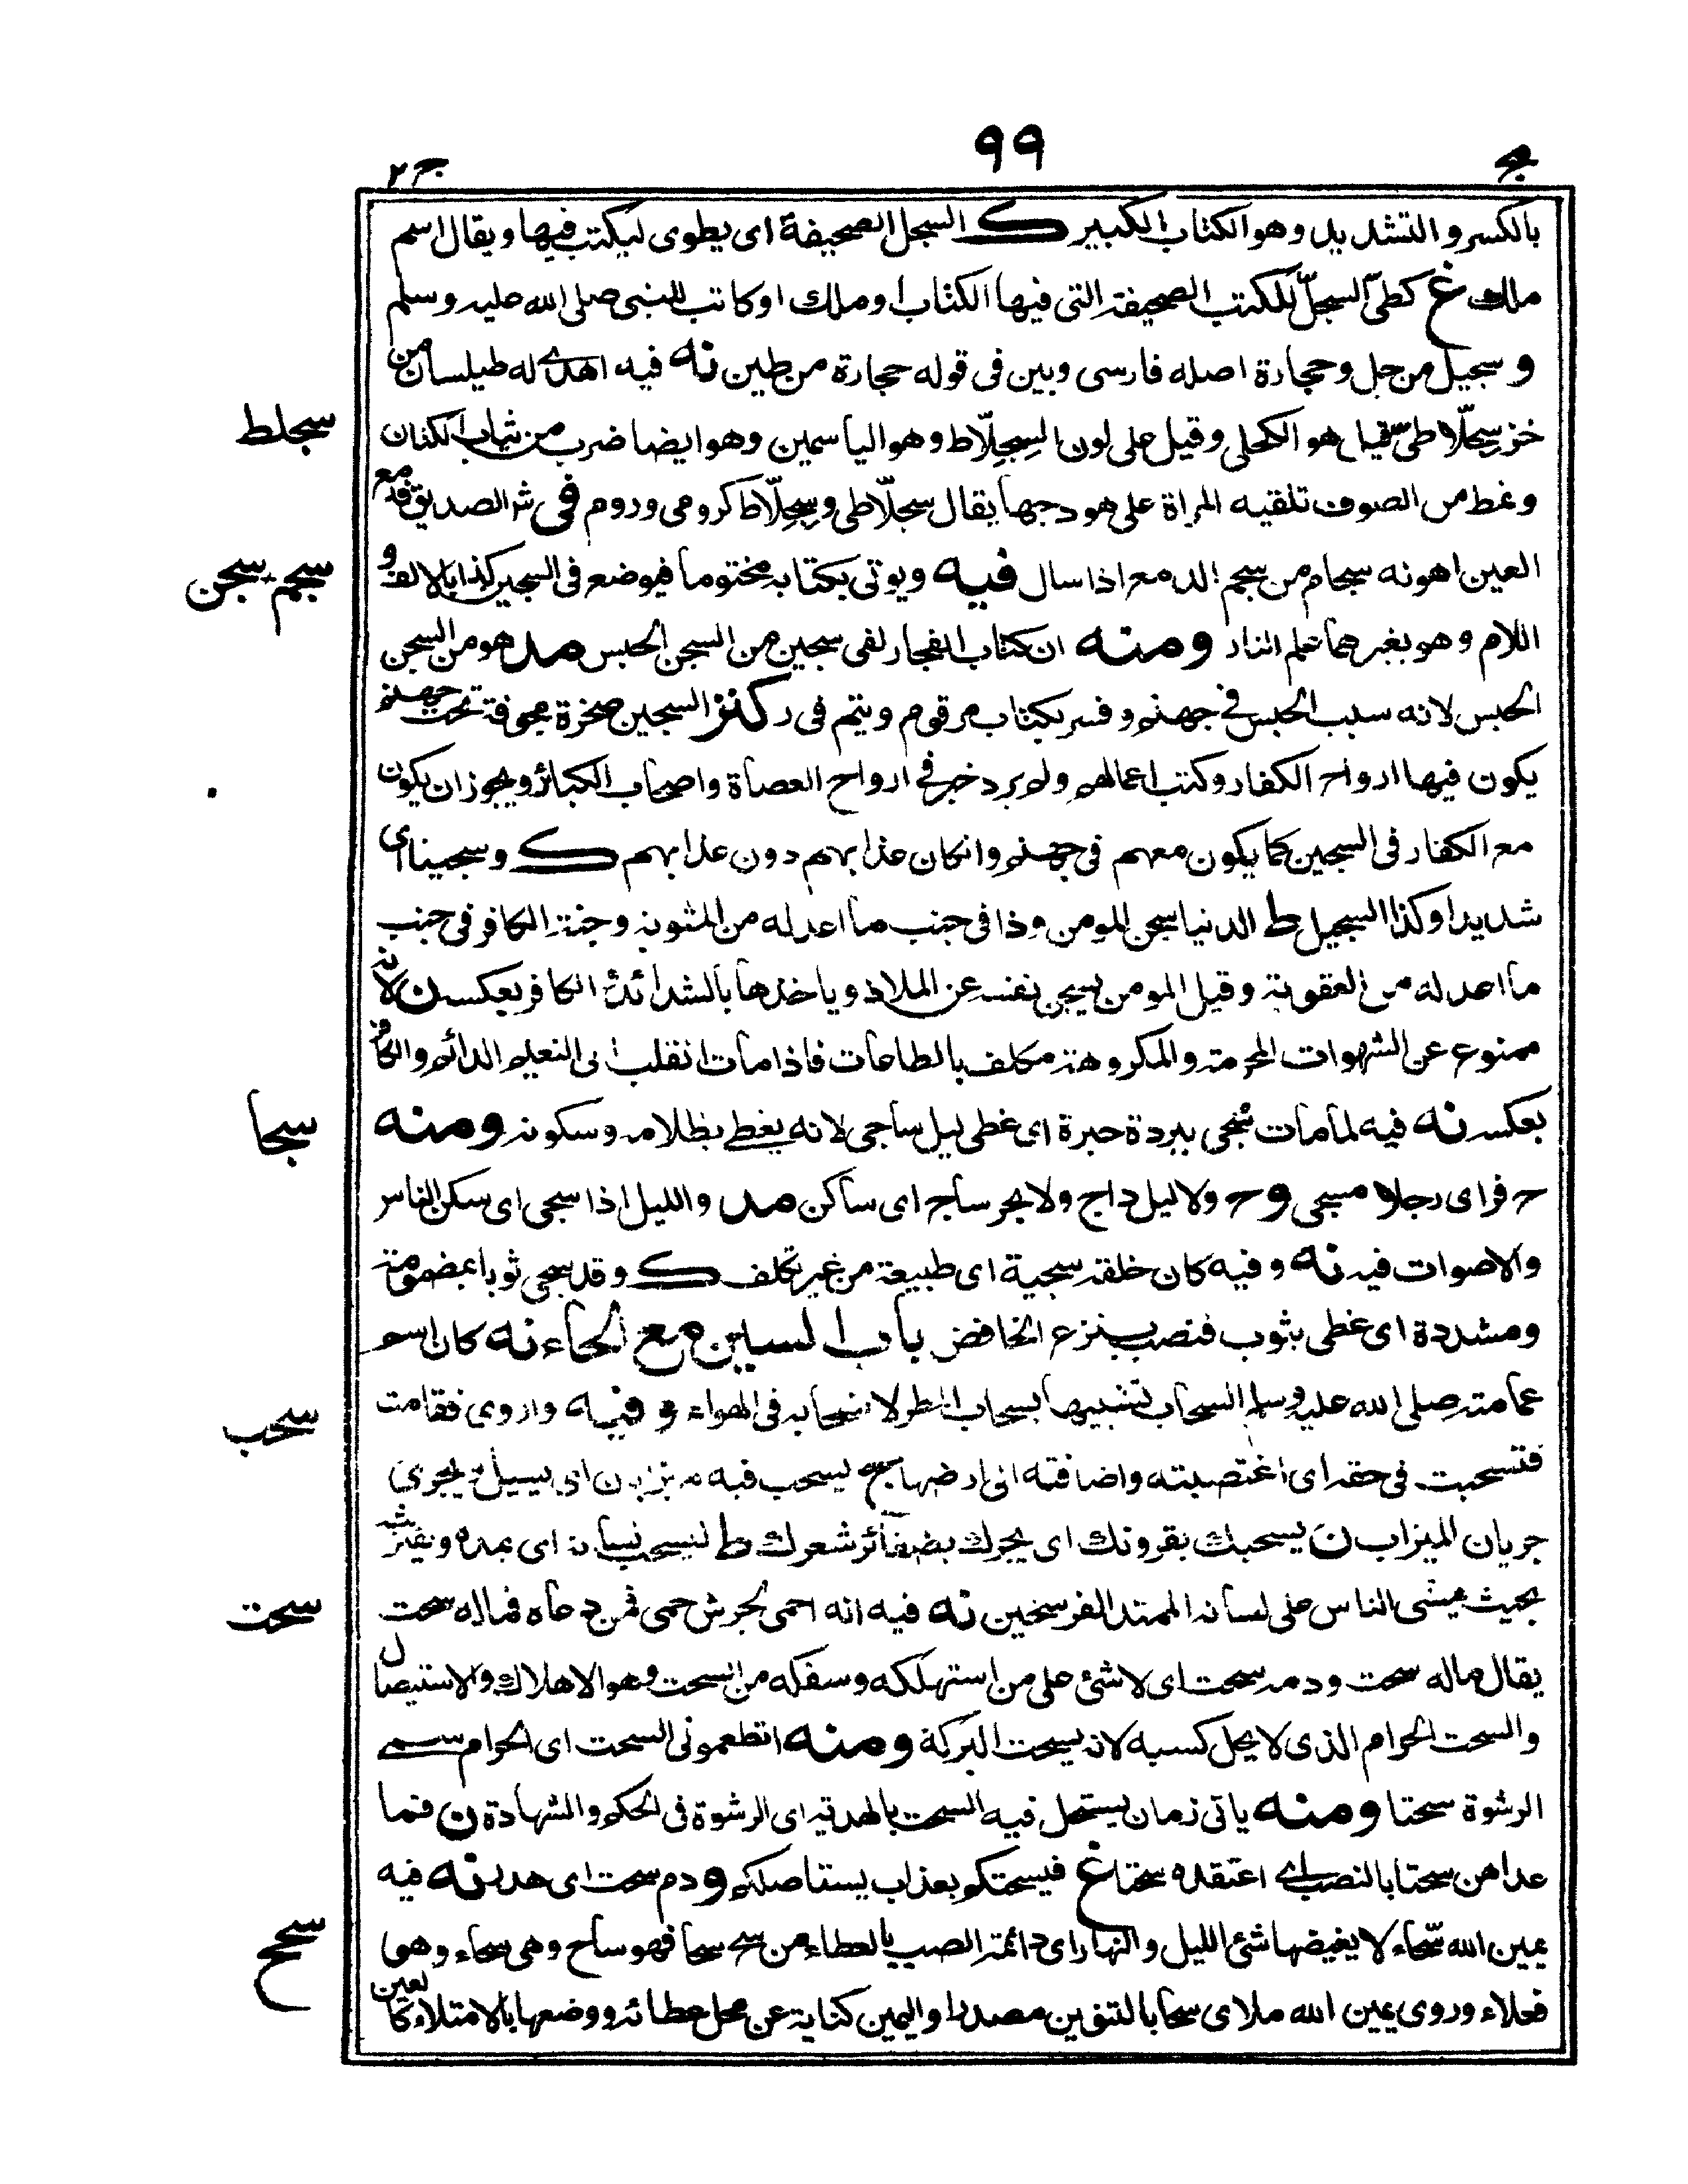 ج ٩٩ ج ٢
بالكسر و التشديد وهو الكتاب الكبير ك السجل الصحيفة اى يطوى ليكتب فيها و يقال اسم
ملك غ كطىّ السجلّ للكتب الصحيفة التى فيها الكتاب او ملك او كاتب للنبى صلى الله عليه و سلم
و سجيل من جل و حجارة اصله فارسى وبين فى قوله حجارة من طين نه فيه اهدى له طيلسان من
خز سجلّاطىّ قيل هو الكحلى و قيل على لون السجلّاط و هو الياسمين و هو ايضا ضرب من ثياب الكتان
سجلط
و نمط من الصوف تلقيه المراة على هودجها يقال سجلّاطى و سجلّاط كرومى و روم فى ش الصديق فدمع
العين اهونه سجام من سجم الدمع اذا سال فيه و يوتى بكتابه مختوما فيوضع فى السجين كذا بالالف و
سجم - سجن
اللام و هو بغيرهما علم النار ومنه ان كتاب الفجار لفى سجين من السجن الحبس مد هو من السجن
الحبس لانه سبب الحبس فى جهنم و فسر بكتاب مرقوم و يتم فى ر كنز السجين صخرة مجوفة تحت جهنم
يكون فيها ارواح الكفار و كتب اعمالهم و لم يرد خبر فى ارواح العصاة و اصحاب الكبائر و يجوز ان يكون
مع الكفار فى السجين كما يكون معهم فى جهنم و انكان عذابهم دون عذابهم ك و سجينا اى
شديدا و كذا السجيل ط الدنيا سجن المومن و ذا فى جنب ما اعد له من المثوبة و جنة الكافر فى جنب
ما اعد له من العقوبة و قيل المومن يسجن نفسه عن الملاذ و ياخذها بالشدائد و الكافر بعكسه ن لانه
ممنوع عن الشهوات المحرمة و المكروهة مكلف بالطاعات فاذا مات انقلب الى النعيم الدائم و الكافر
بعكسه نه فيه لما مات سُجى ببردة حبرة اى غطى ليل ساجى لانه يغطى بظلامه و سكونه ومنه
سجا
ح فراى رجلا مسجى و ح و لا ليل داج و لا بحر ساج اى ساكن مد و الليل اذا سجى اى سكن الناس
و الاصوات فيه نه و فيه كان خلقه سجية اى طبيعة من غير تكلف ك و قد سجى ثوبا بمضمومة
و مشددة اى غطى بثوب فنصب بنزع الخافض باب السين مع الحاء نه كان اسم
عمامته صلى الله عليه و سلم السحاب تشبيها بسحاب المطر لانسحابه فى الهواء و فيه و اروى فقامت
سحب
فتسحبت فى حقه اى اغتصبته و اضافته الى ارضها ج يسحب فيه ميزابان اى يسيل و يجرى
جريان الميزاب ن يسحبك بقرونك اى يجرك بضفائر شعرك ط ليسحب لسانه اى يمده و يفترشه
بحيث يمشى الناس على لسانه الممتد الفرسخين نه فيه انه احمى لجرش حمى فمن دعاه فماله سحت
سحت
يقال ماله سحت و دمه سحت اى لا شئ على من استهلكه و سفكه من السحت و هو الاهلاك و الاستيصال
و السحت الحرام الذى لا يحل كسبه لانه يسحت البركة ومنه اتطعمونى السحت اى الحرام سمى
الرشوة سحتا ومنه ياتى زمان يستحل فيه السحت بالهدية اى الرشوة فى الحكم و الشهادة ن فما
عداهن سحتا بالنصب اى اعتقده سحتا غ فيسحتكم بعذاب يستاصلكم و دم سحت اى هدر نه فيه
يمين الله سحّاء لا يغيضها شئ الليل و النهار اى دائمة الصب بالعطاء من سح سحا فهو ساح و هى سحاء و هو
سحح
فعلاء و روى يمين الله ملاى سحا بالتنوين مصدرا و اليمين كناية عن محل عطائه و وضعها بالامتلاء كالعين